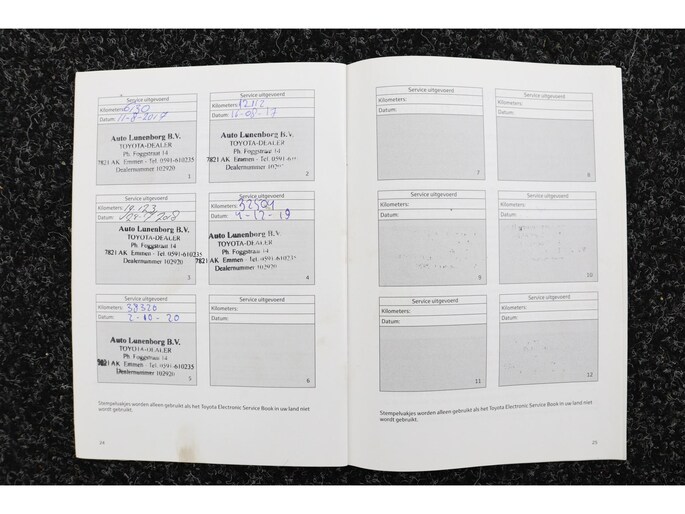 Service uitgevoerd
Kilometers: 6130
Datum: 11-8-2017
Auto Lunenborg B.V.
TOYOTA-DEALER
Ph. Foggstraat 14
7821 AK Emmen - Tel. 0591-610235
Dealernummer 102920
1
Service uitgevoerd
Kilometers: 12112
Datum:
Auto Lunenborg B.V.
TOYOTA-DEALER
Ph. Foggstraat 14
7821 AK Emmen - Tel. 0591-610
Dealernummer
2
Service uitgevoerd
Kilometers: 19.123
Datum:
Auto Lunenborg B.V.
TOYOTA-DEALER
Ph. Foggstraat 14
7821 AK Emmen - Tel. 0591-610235
Dealernummer 102920
3
Service uitgevoerd
Kilometers: 32504
Datum:
Auto Lunenborg B.V.
TOYOTA-DEALER
Ph. Foggstraat 14
7821 AK Emmen - Tel. 0591-610235
Dealernummer 102920
4
Service uitgevoerd
Kilometers: 38320
Datum: 2-10-20
Auto Lunenborg B.V.
TOYOTA-DEALER
Ph. Foggstraat 14
7821 AK Emmen - Tel. 0591-610235
Dealernummer 102920
5
Service uitgevoerd
Kilometers:
Datum:
6
Stempelvakjes worden alleen gebruikt als het Toyota Electronic Service Book in uw land niet
wordt gebruikt.
24
Service uitgevoerd
Kilometers:
Datum:
7
Service uitgevoerd
Kilometers:
Datum:
8
Service uitgevoerd
Kilometers:
Datum:
9
Service uitgevoerd
Kilometers:
Datum:
10
Service uitgevoerd
Kilometers:
Datum:
11
Service uitgevoerd
Kilometers:
Datum:
12
Stempelvakjes worden alleen gebruikt als het Toyota Electronic Service Book in uw land niet
wordt gebruikt.
25